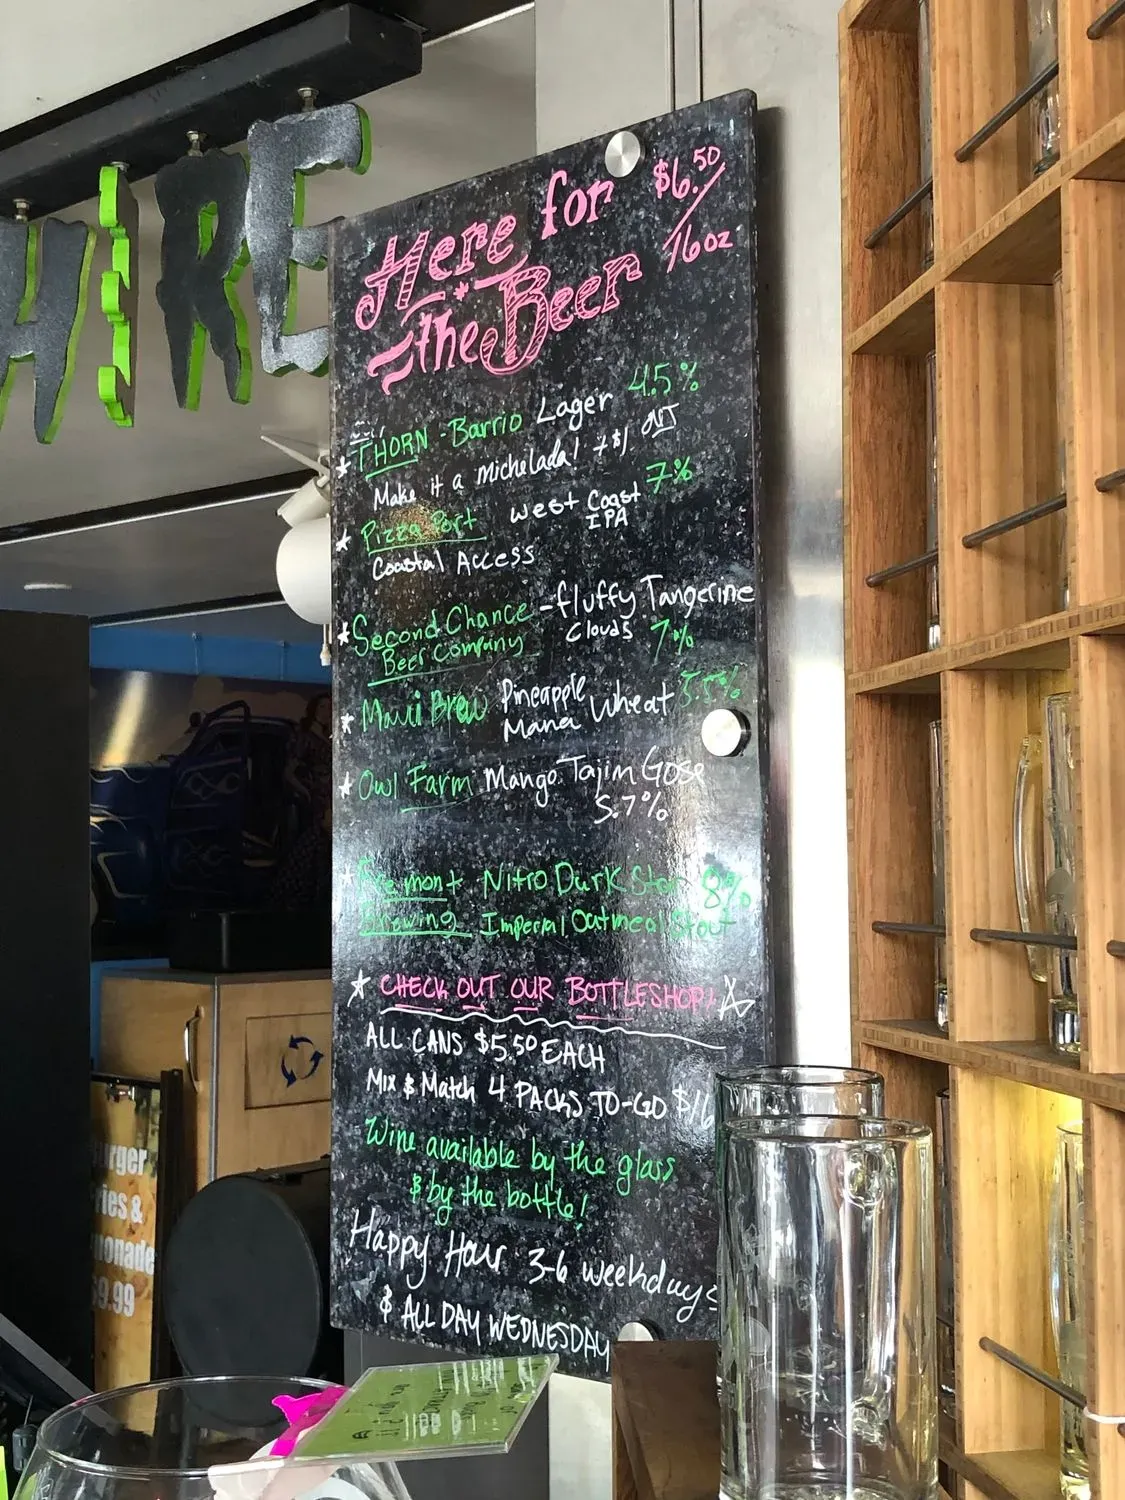 HIRE
Here for $6.50/
the Beer 16oz
THORN - Barrio Lager 4.5%
Make it a michelada! +$1
Pizza Port West Coast 7%
IPA
Coastal Access
Second Chance - fluffy Tangerine
Beer Company Clouds 7%
Maui Brew Pineapple Wheat 5.5%
Mana
Owl Farm Mango Tajin Gose
5.7%
Fremont Nitro Dark Star 8%
Brewing Imperial Oatmeal Stout
CHECK OUT OUR BOTTLESHOP!
ALL CANS $5.50 EACH
Mix & Match 4 PACKS TO-GO $16
Wine available by the glass
& by the bottle!
Happy Hour 3-6 weekdays
& ALL DAY WEDNESDAY
urger
ries &
monade
9.99